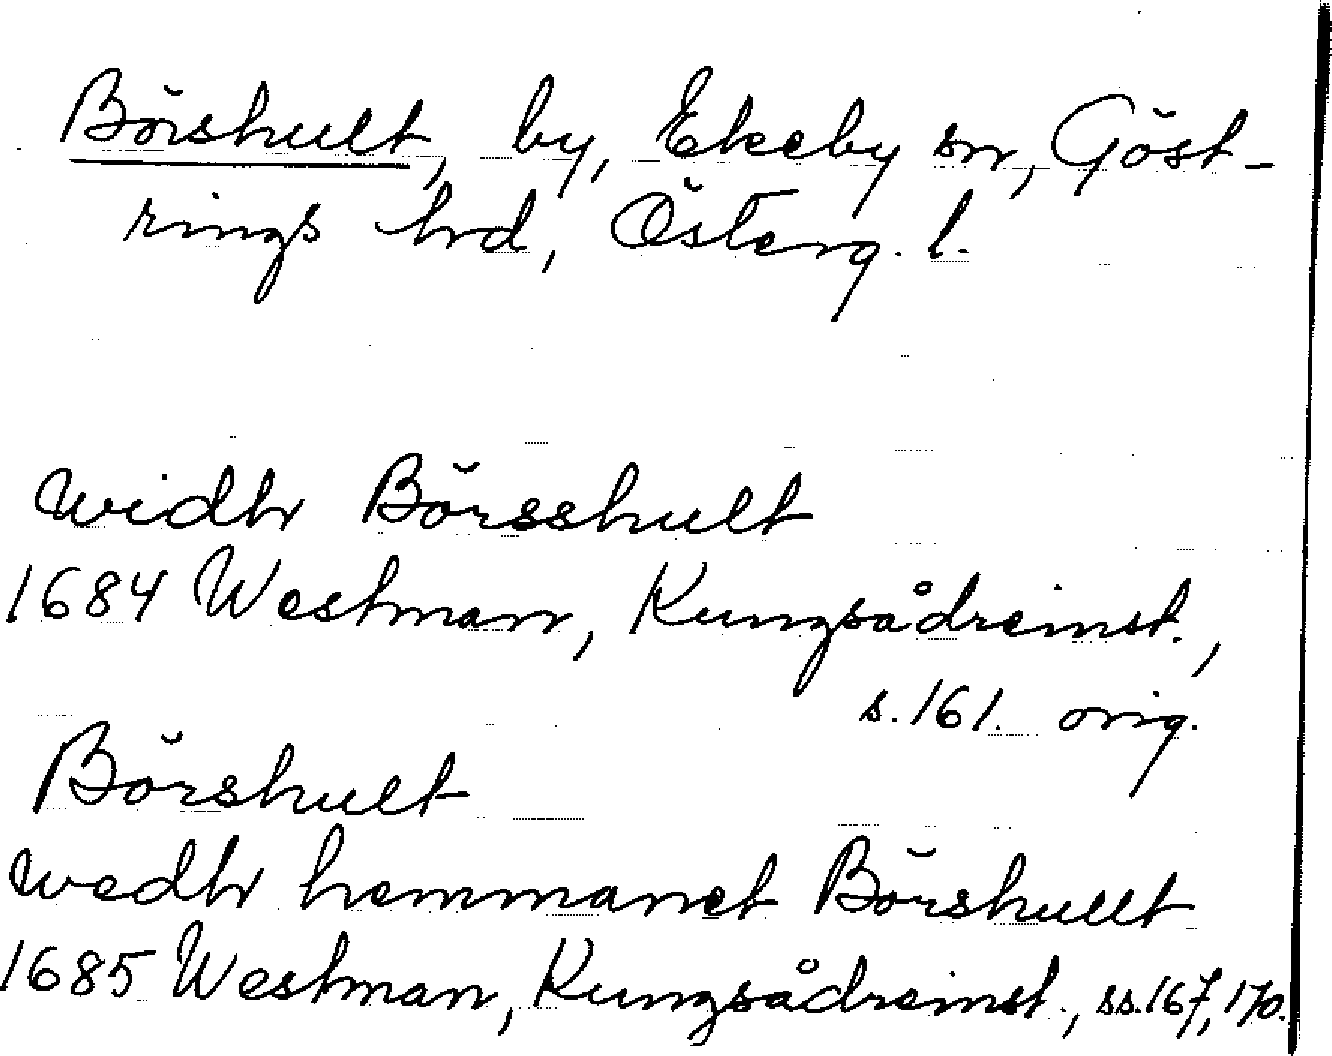 Börshult, by, Ekeby sn, Göst-
rings hrd, Österg. l.
widh Börsshult
1684 Westman, Kungsådreinst.,
s. 161. orig.
Börshult
wedh hemmanet Börshullt
1685 Westman, Kungsådreinst., ss. 167, 170.